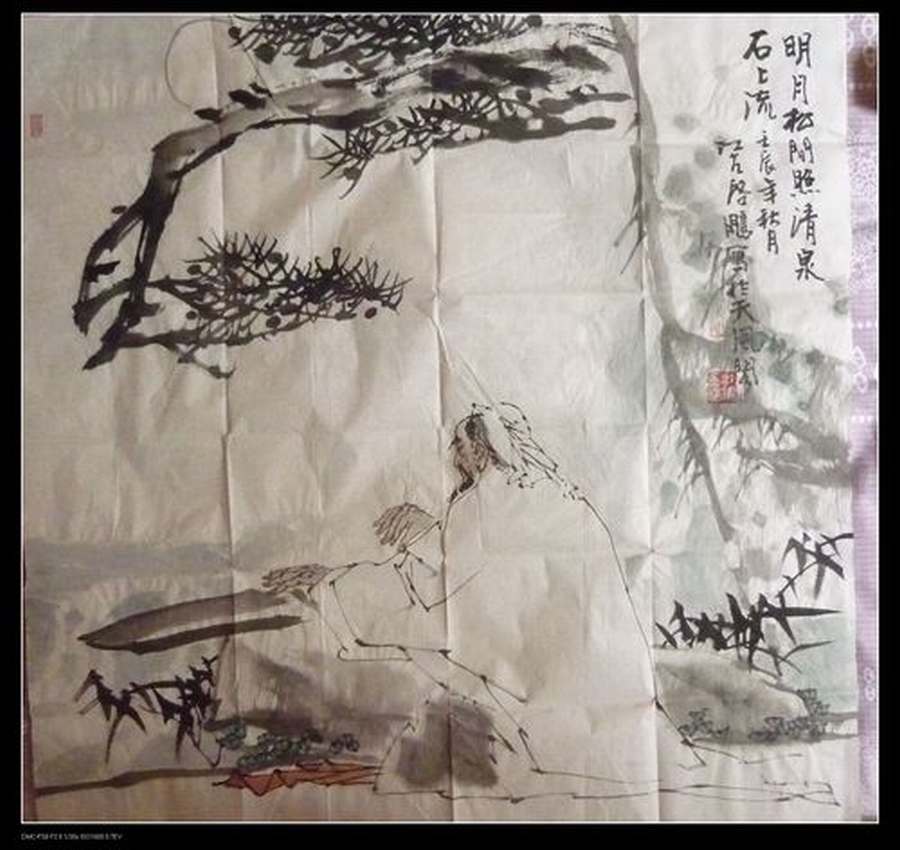 明月松間照清泉
石上流 壬辰年秋月
啓鵬寫於天風閣